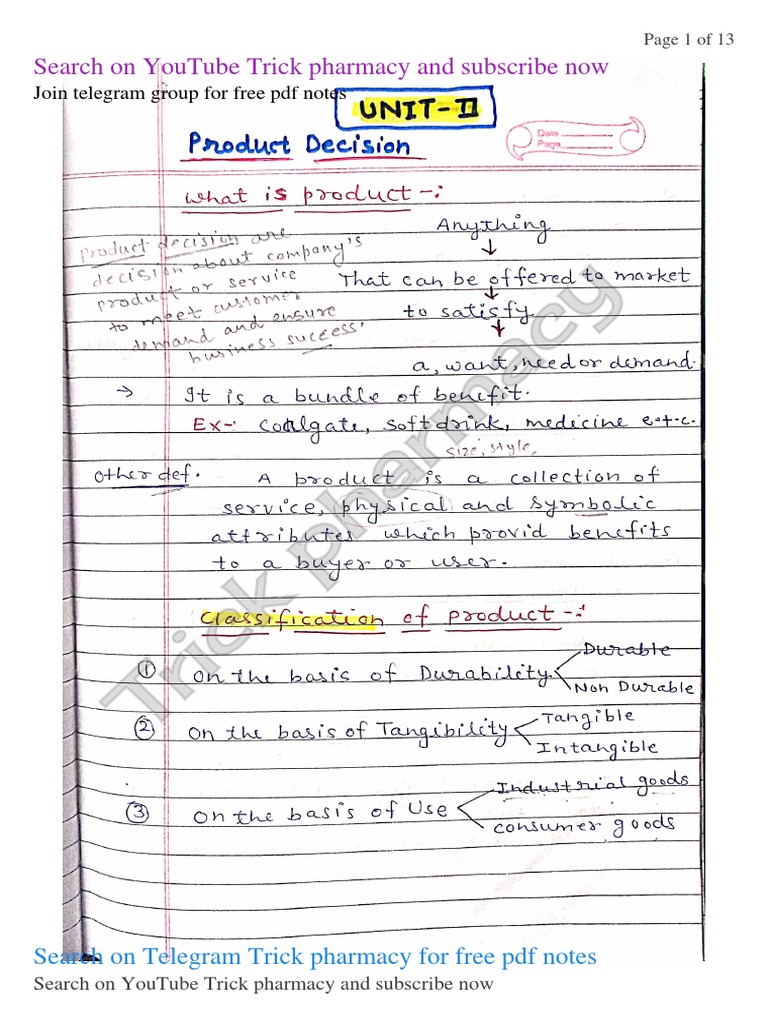 Page 1 of 13
Search on YouTube Trick pharmacy and subscribe now
Join telegram group for free pdf notes
UNIT-II
Product Decision
Date
Page
what is product -:
Anything
↓
That can be offered to market
↓
to satisfy
↓
a, want, need or demand.
Product decision are
decision about company's
product or service
to meet customer
demand and ensure
business success.
→ It is a bundle of benefit.
Ex-: Coalgate, soft drink, medicine e.t.c.
size, style,
Other def. A product is a collection of
service, physical and symbolic
attributes which provid benefits
to a buyer or user.
Classification of product -:
① On the basis of Durability
Durable
Non Durable
② On the basis of Tangibility
Tangible
Intangible
③ On the basis of Use
Industrial goods
consumer goods
Trick pharmacy
Search on Telegram Trick pharmacy for free pdf notes
Search on YouTube Trick pharmacy and subscribe now